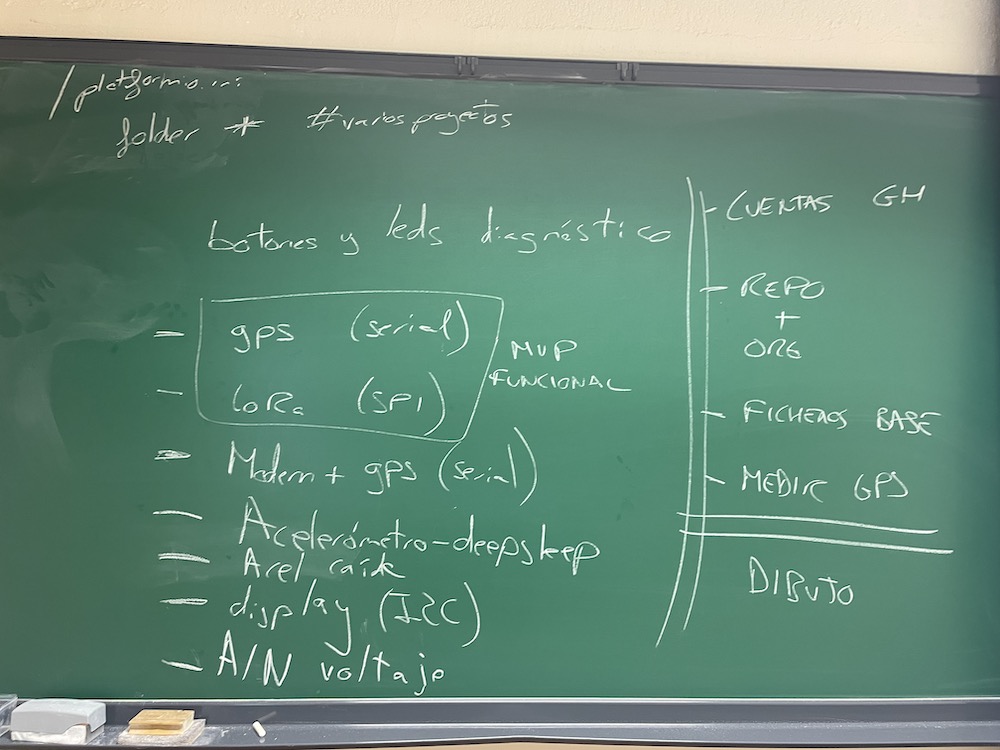 /platformio.ini
folder * #varios proyectos
botones y leds diagnóstico
- gps (serial)
- LoRa (SPI)
MVP
FUNCIONAL
- Modem + gps (serial)
- Acelerómetro-deepsleep
- Acel caída
- display (I2C)
- A/N voltaje
- CUENTAS GH
- REPO
+
ORG
- FICHEROS BASE
- MEDIR GPS
DIBUJO